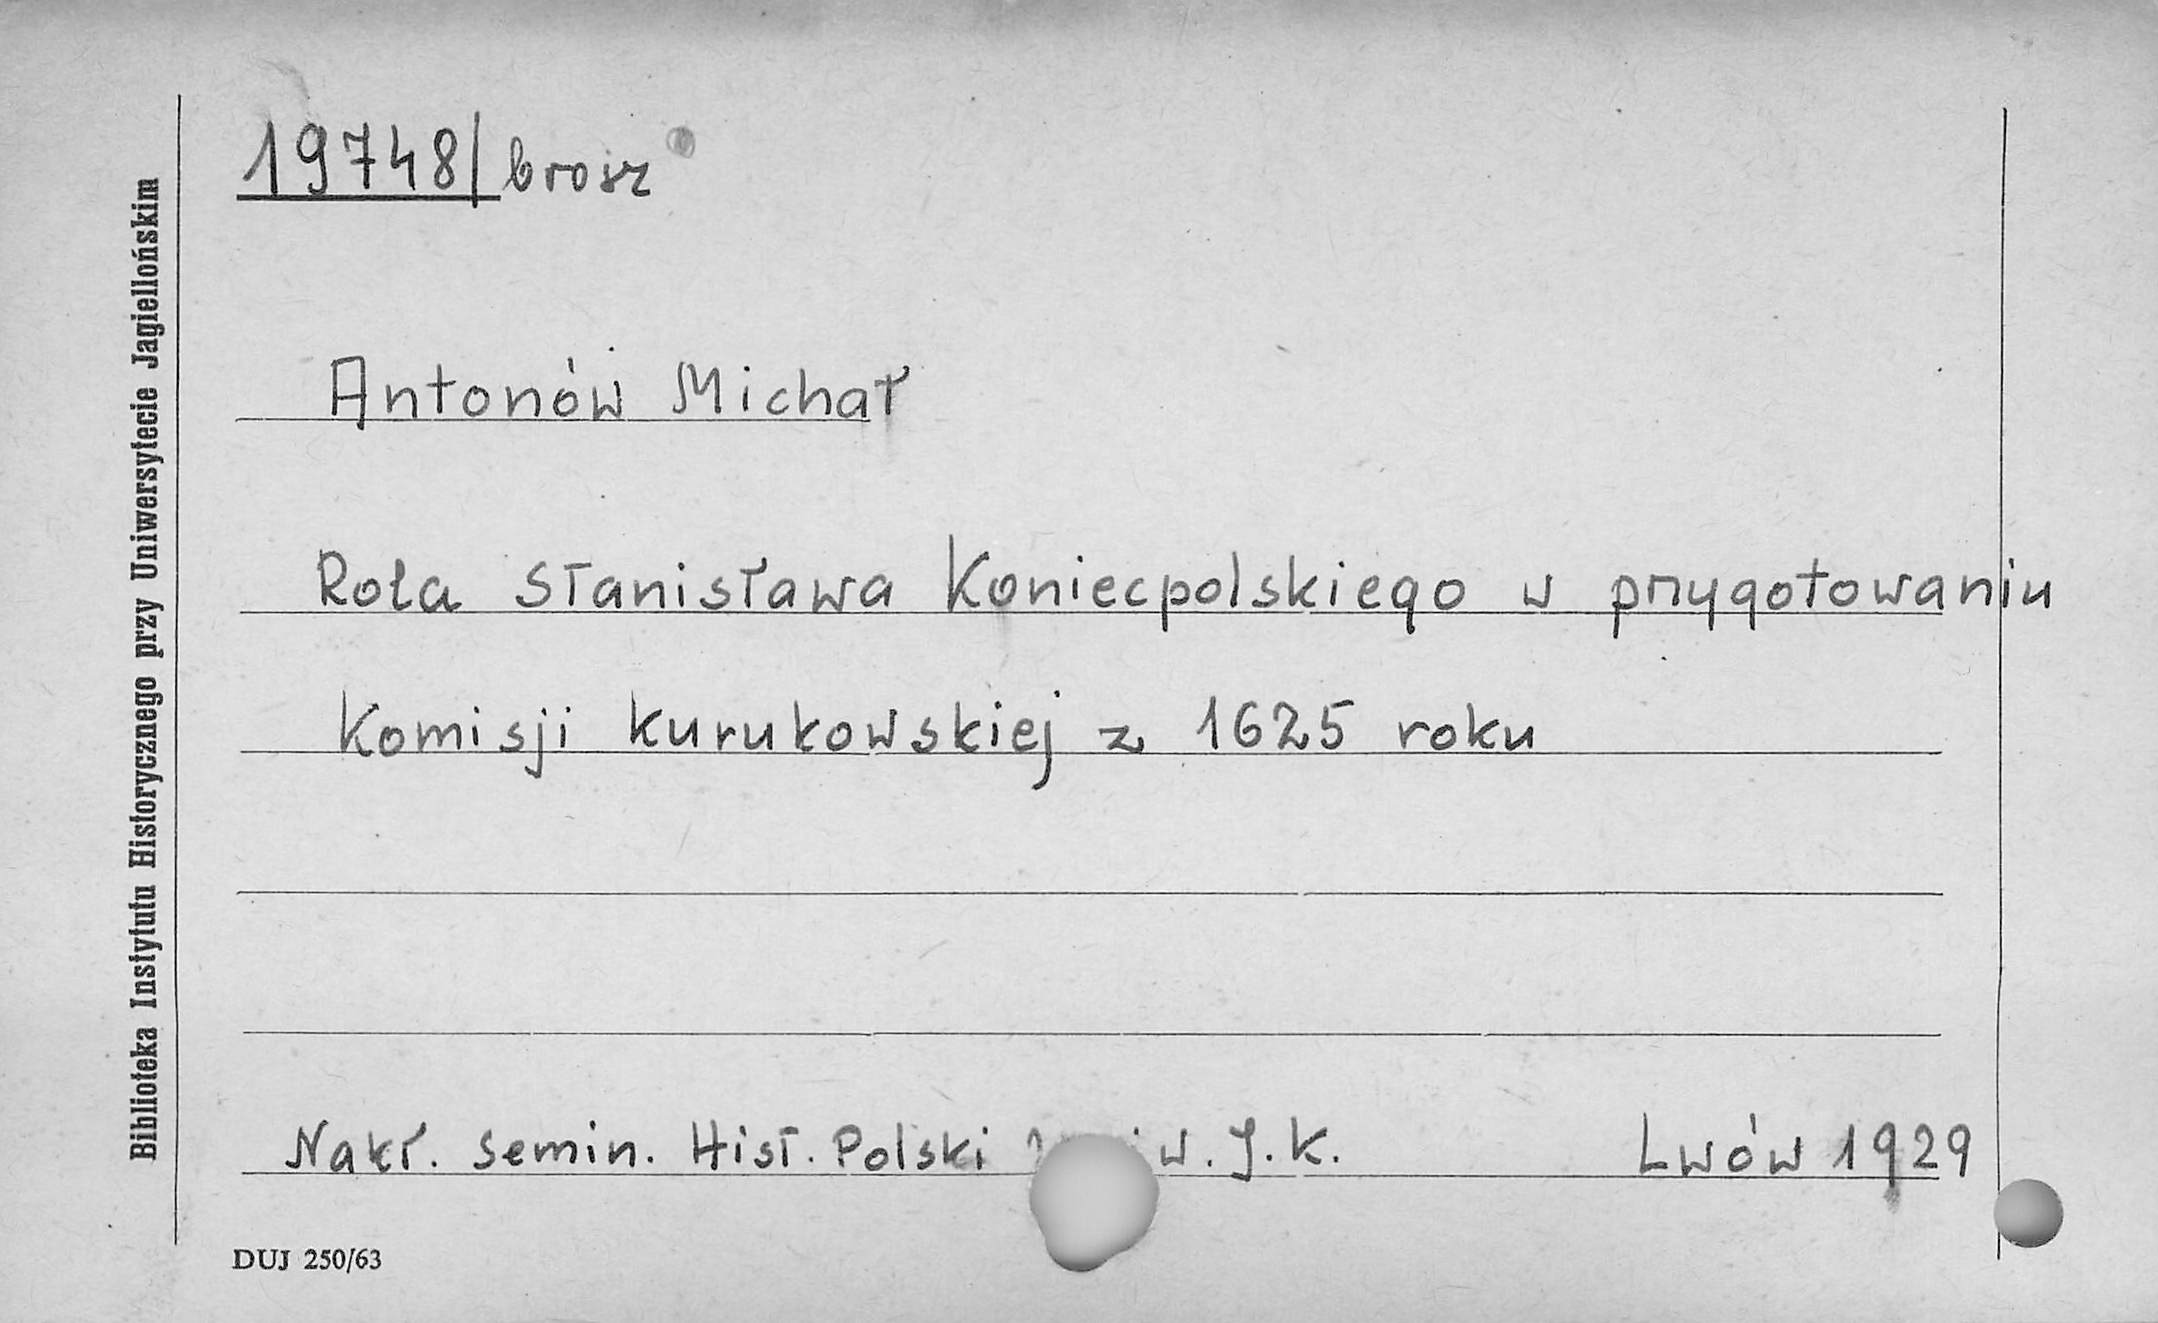 19748/brosz
Antonów Michał
Rola Stanisława Koniecpolskiego w przygotowaniu
Komisji kurukowskiej z 1625 roku
Nakł. semin. Hist. Polski w. J. K. Lwów 1929
DUJ 250/63
Biblioteka Instytutu Historycznego przy Uniwersytecie Jagiellońskim